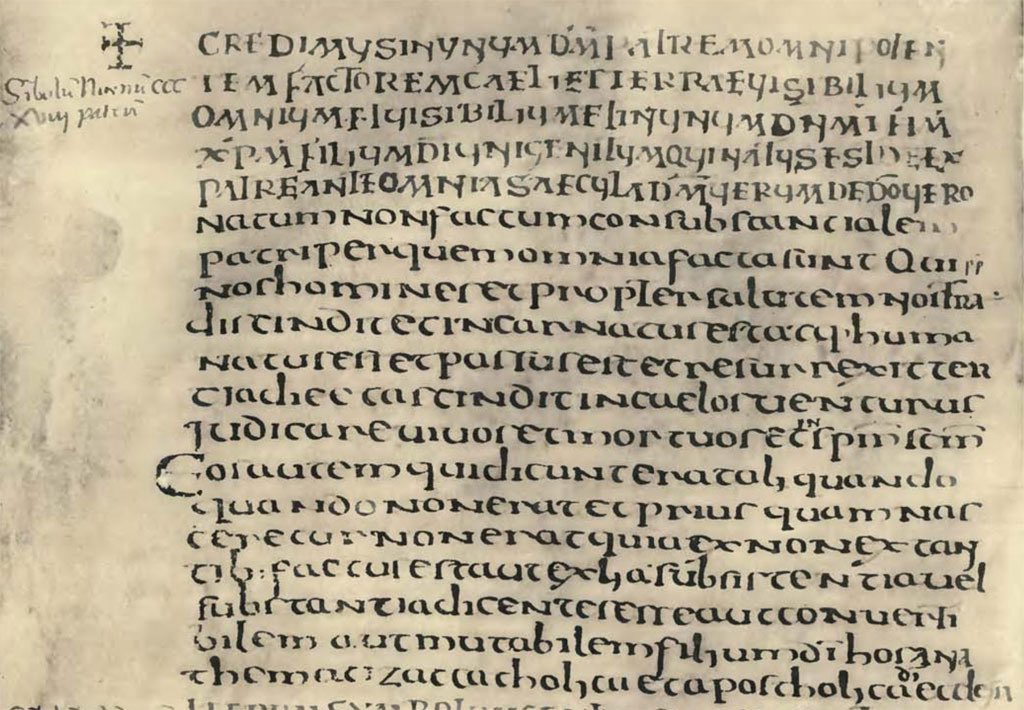 Simbolū Nicenū CCC
XVIII patrū
CREDIMUS IN UNUM DM̄ PATREM OMNIPOTEN
TEM FACTOREM CAELI ET TERRAE UISIBILIUM
OMNIUM ET UISIBILIUM ET IN UNUM DNM̄ IHM̄
XPM̄ FILIUM DI UNIGENITUM QUI NATUS EST EX
PATRE ANTE OMNIA SAECULA DM̄ UERUM DE DŌ UERO
natum non factum consubstancialem
patri per quem omnia facta sunt Qui pp
nos homines et propter salutem nostra
discindit et incarnatus est atq; huma
natus est et passus est et resurrexit ter
tia die et ascindit in caelos uenturus
judicare uiuos et mortuos et in spm̄ scm̄
Eos autem qui dicunt erat aliquando
quando non erat et prius quam nas
ceretur non erat quia ex non extan
tib; factus est aut ex ha subsistentia uel
substantia dicentes esse aut conuerti
bilem aut mutabilem filium dī hos ana
themacizat catholica et apostholica ecclesi